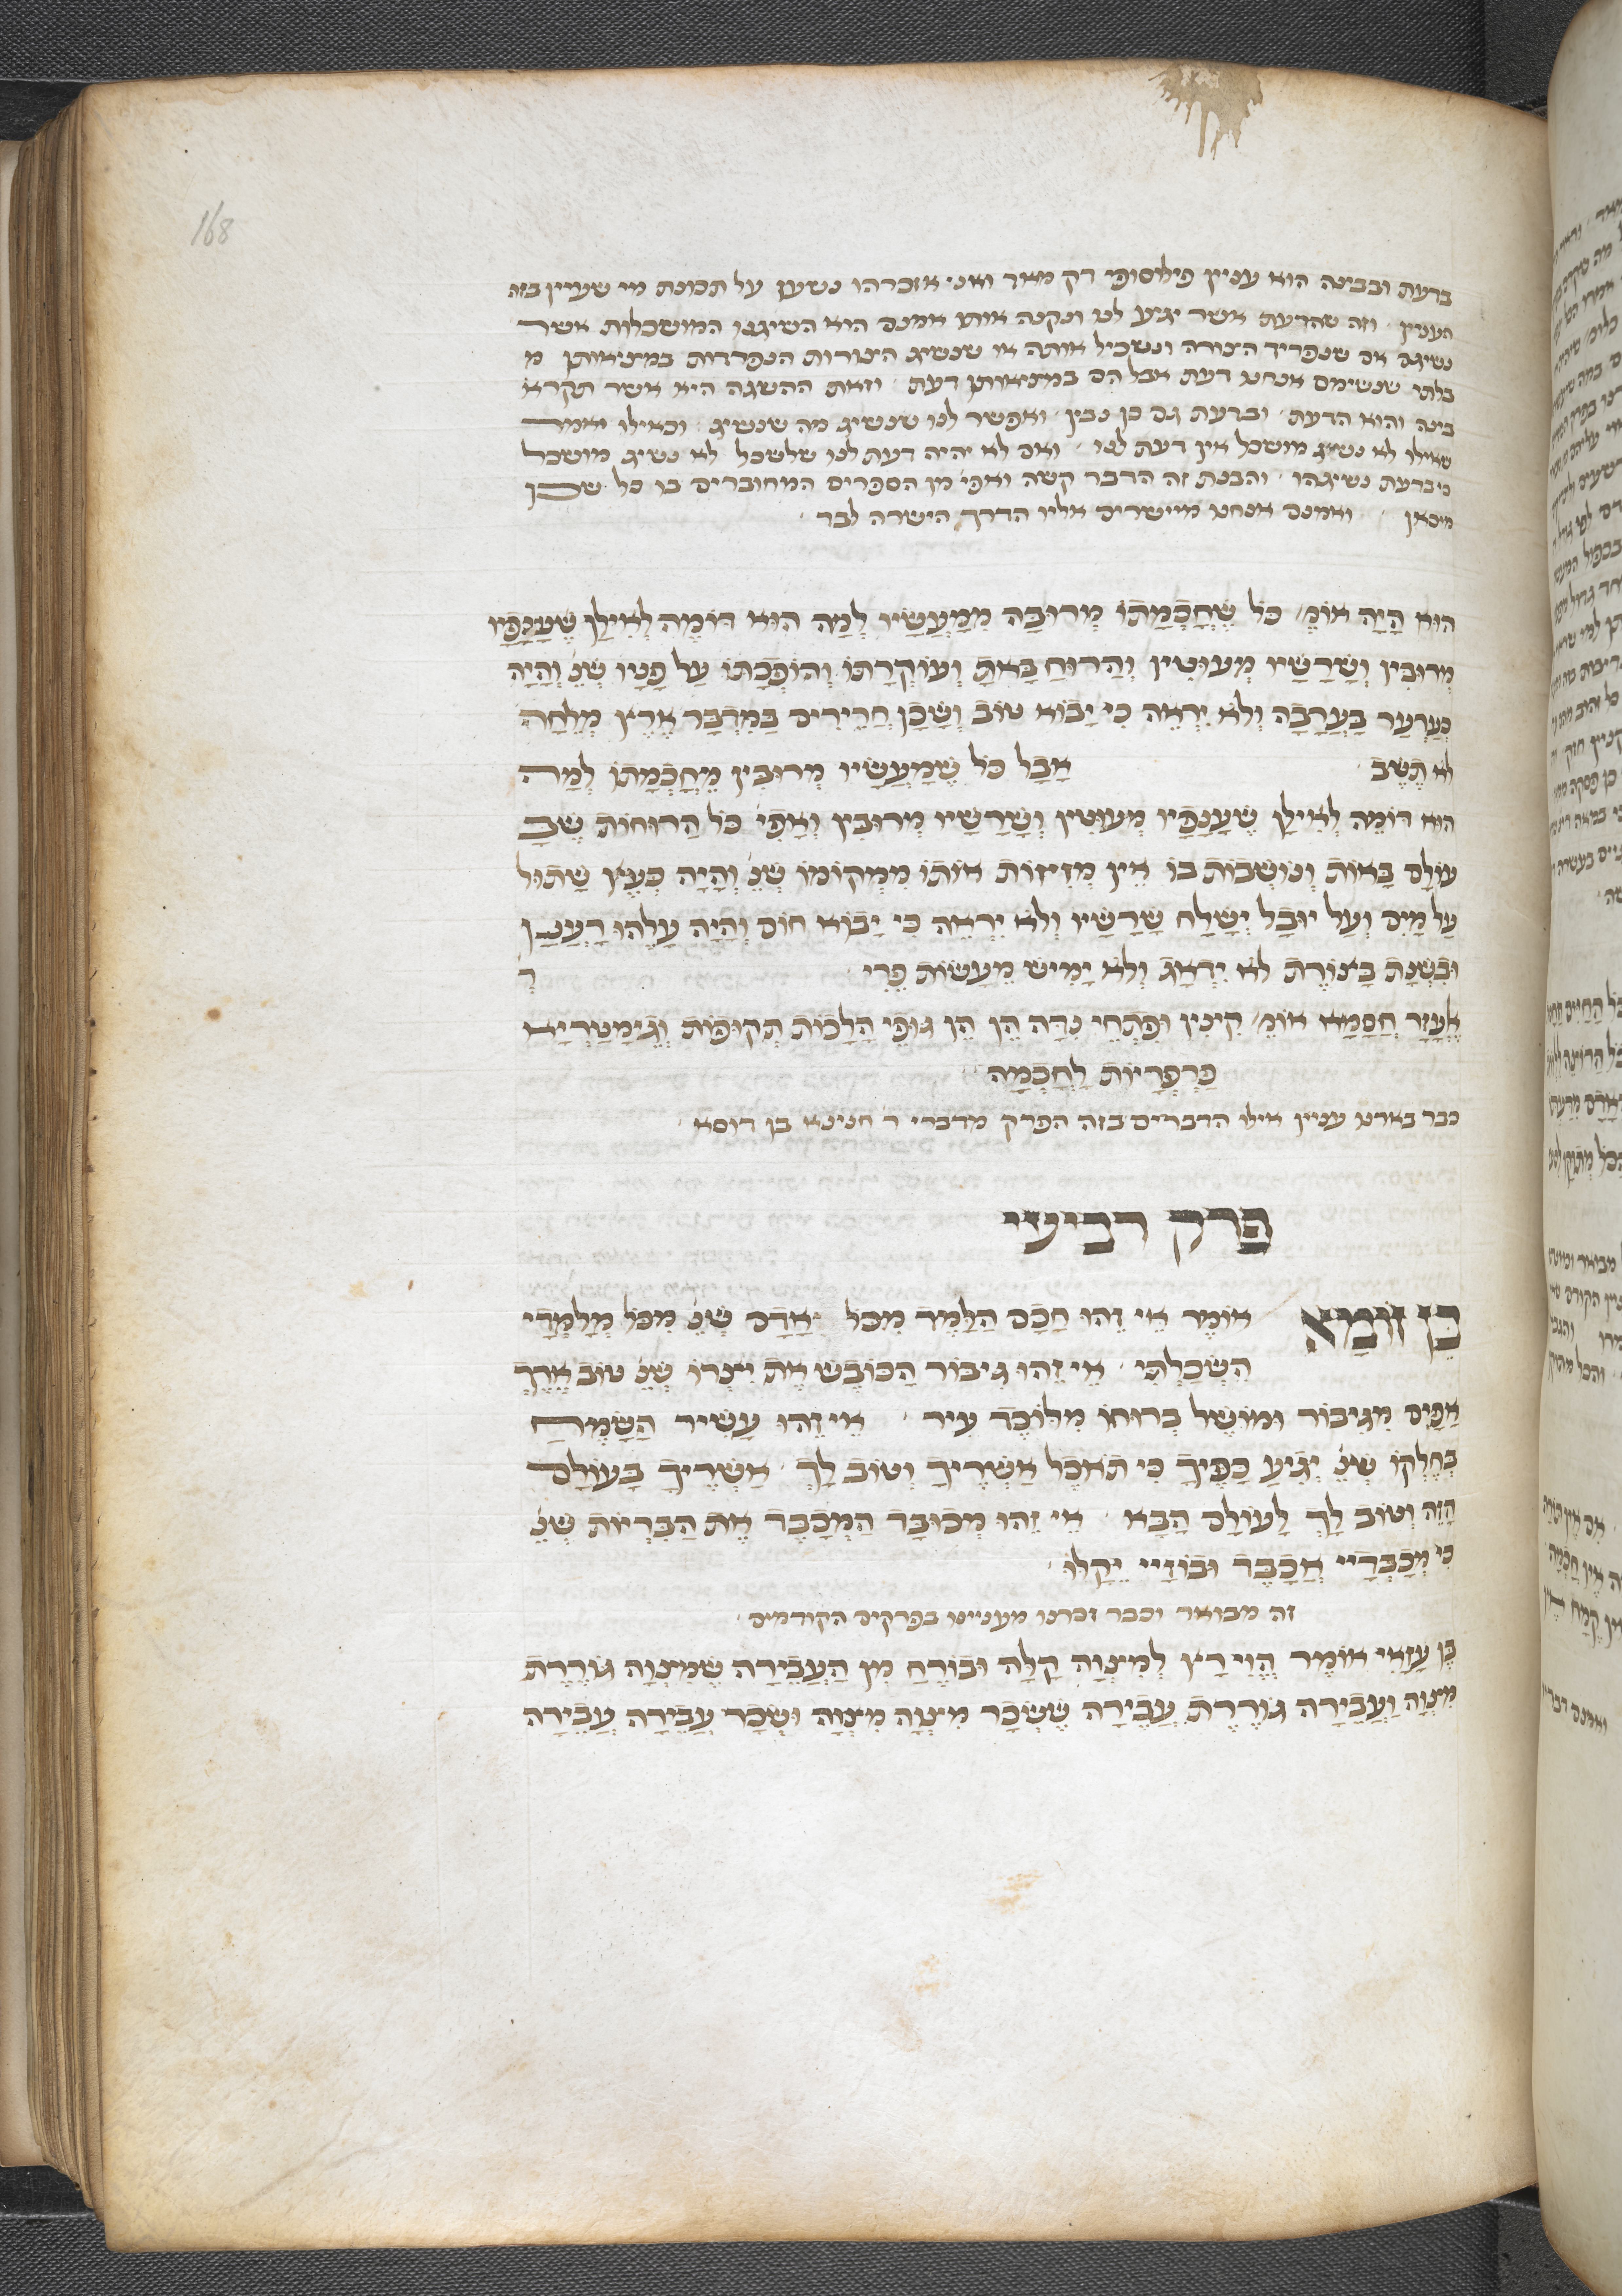 168
בדעת ובבינה הוא עניין פילוסופי דק מאד ואני אזכרהו נשען על תכונת מי שעיין בזה
העניין וזה שהדעת אשר יגיע לנו ונקנה אותו אמנם הוא השיגנו המושכלות אשר
נשיגם אם שנפריד הצורה ונשכיל אותה או שנשיג הצורות הנפרדות במציאותן מ
בלתי שנשימם אנחנו דעת אבל הם במציאותן דעת וזאת ההשגה היא אשר תקרא
בינה והוא הדעת ובדעת גם כן נבין ואפשר לנו שנשיג מה שנשיג וכאילו יאמר
שאילו לא נשיג מושכל אין דעת לנו ואם לא יהיה דעת לנו שלשכל לא נשיג מושכל
כי בדעת נשיגהו והבנת זה הדבר קשה ואפי' מן הספרים המחוברים בו כל שכן
מכאן ואמנם אנחנו מיישרים אליו הדרך הישרה לבד
הוּא הָיָה אוֹמֵ' כֹּל שֶׁחָכְמָתוֹ מְרוּבָּה מִמַּעֲשָׂיו לְמַה הוּא דוֹמֶה לְאִילָן שֶׁעֲנָפָיו
מְרוּבִּין וְשָׁרָשָׁיו מְעוּטִין וְהָרוּחַ בָּאתָ וְעוֹקַרְתּוֹ וְהוֹפַכְתּוֹ עַל פָּנָיו שֶׁנֶּ' וְהָיָה
כְּעַרְעָר בָּעֲרָבָה וְלֹא יִרְאֶה כִּי יָבוֹא טוֹב וְשָׁכַן חֲרֵירִים בַּמִּדְבָּר אֶרֶץ מְלֵחָה
לֹא תֵשֵׁב אֲבָל כֹּל שֶׁמַּעֲשָׂיו מְרוּבִּין מֵחָכְמָתוֹ לְמָה
הוּא דוֹמֶה לְאִילָן שֶׁעֲנָפָיו מְעוּטִין וְשָׁרָשָׁיו מְרוּבִּין וְאָפִי' כֹּל הָרוּחוֹת שֶׁבָ
עוֹלָם בָּאוֹת וְנוֹשְׁבוֹת בּוֹ אֵין מְזִיזוֹת אוֹתוֹ מִמְּקוֹמוֹ שֶׁנֶּ' וְהָיָה כְּעֵץ שָׁתוּל
עַל מַיִם וְעַל יוּבַל יְשַׁלַּח שָׁרָשָׁיו וְלֹא יִרְאֶה כִּי יָבוֹא חוֹם וְהָיָה עָלֵהוּ רַעֲנָן
וּבִשְׁנַת בַּצּוֹרֶת לֹא יִדְאָג וְלֹא יָמִישׁ מֵעֲשׂוֹת פֶּרִי ר'
אֶלְעָזָר חַסְמָא אוֹמֵ' קִינִּין וּפִתְחֵי נִדָּה הֵן הֵן גּוּפֵי הֲלָכוֹת תְּקוּפוֹת וְגִימַטְרִיָא
פַּרְפְּרָיוֹת לַחָכְמָה
כבר בארנו עניין אילו הדברים בזה הפרק מדברי ר' חנינא בן דוסא
פרק רביעי
בֶּן זוֹמָא אוֹמֶר אֵי זֶהוּ חָכָם הַלָּמֵד מִכֹּל אָדָם שֶׁנֶּ' מִכֹּל מְלַמְּדַי
הִשְׂכַּלְתִּי אֵי זֶהוּ גִיבּוֹר הַכּוֹבֵשׁ אֶת יִצְרוֹ שֶׁנֶּ' טוֹב אֶרֶךְ
אַפַּיִם מִגִּיבּוֹר וּמוֹשֵׁל בְּרוּחוֹ מִלּוֹכֵד עִיר אֵי זֶהוּ עָשִׁיר הַשָּׂמֵחַ
בְּחֶלְקוֹ שֶׁנֶּ' יְגִיעַ כַּפֶּיךָ כִּי תֹאכֵל אַשְׁרֶיךָ וְטוֹב לָךְ אַשְׁרֶיךָ בָּעוֹלָם
הַזֶּה וְטוֹב לָךְ לָעוֹלָם הַבָּא אֵי זֶהוּ מְכוּבָּד הַמְּכַבֵּד אֶת הַבְּרִיּוֹת שֶׁנֶּ'
כִּי מְכַבְּדַיי אֲכַבֵּד וּבוֹזַיי יֵקָלוּ
זה מבואר וכבר זכרנו מעניינו בפרקים הקודמים
בֶּן עַזַּאי אוֹמֶר הֱוֵי רָץ לְמִצְוָה קַלָּה וּבוֹרֵחַ מִן הָעֲבֵירָה שֶׁמִּצְוָה גוֹרֶרֶת
מִצְוָה וַעֲבֵירָה גוֹרֶרֶת עֲבֵירָה שֶׁשְּׂכַר מִצְוָה מִצְוָה וּשְׂכַר עֲבֵירָה עֲבֵירָה